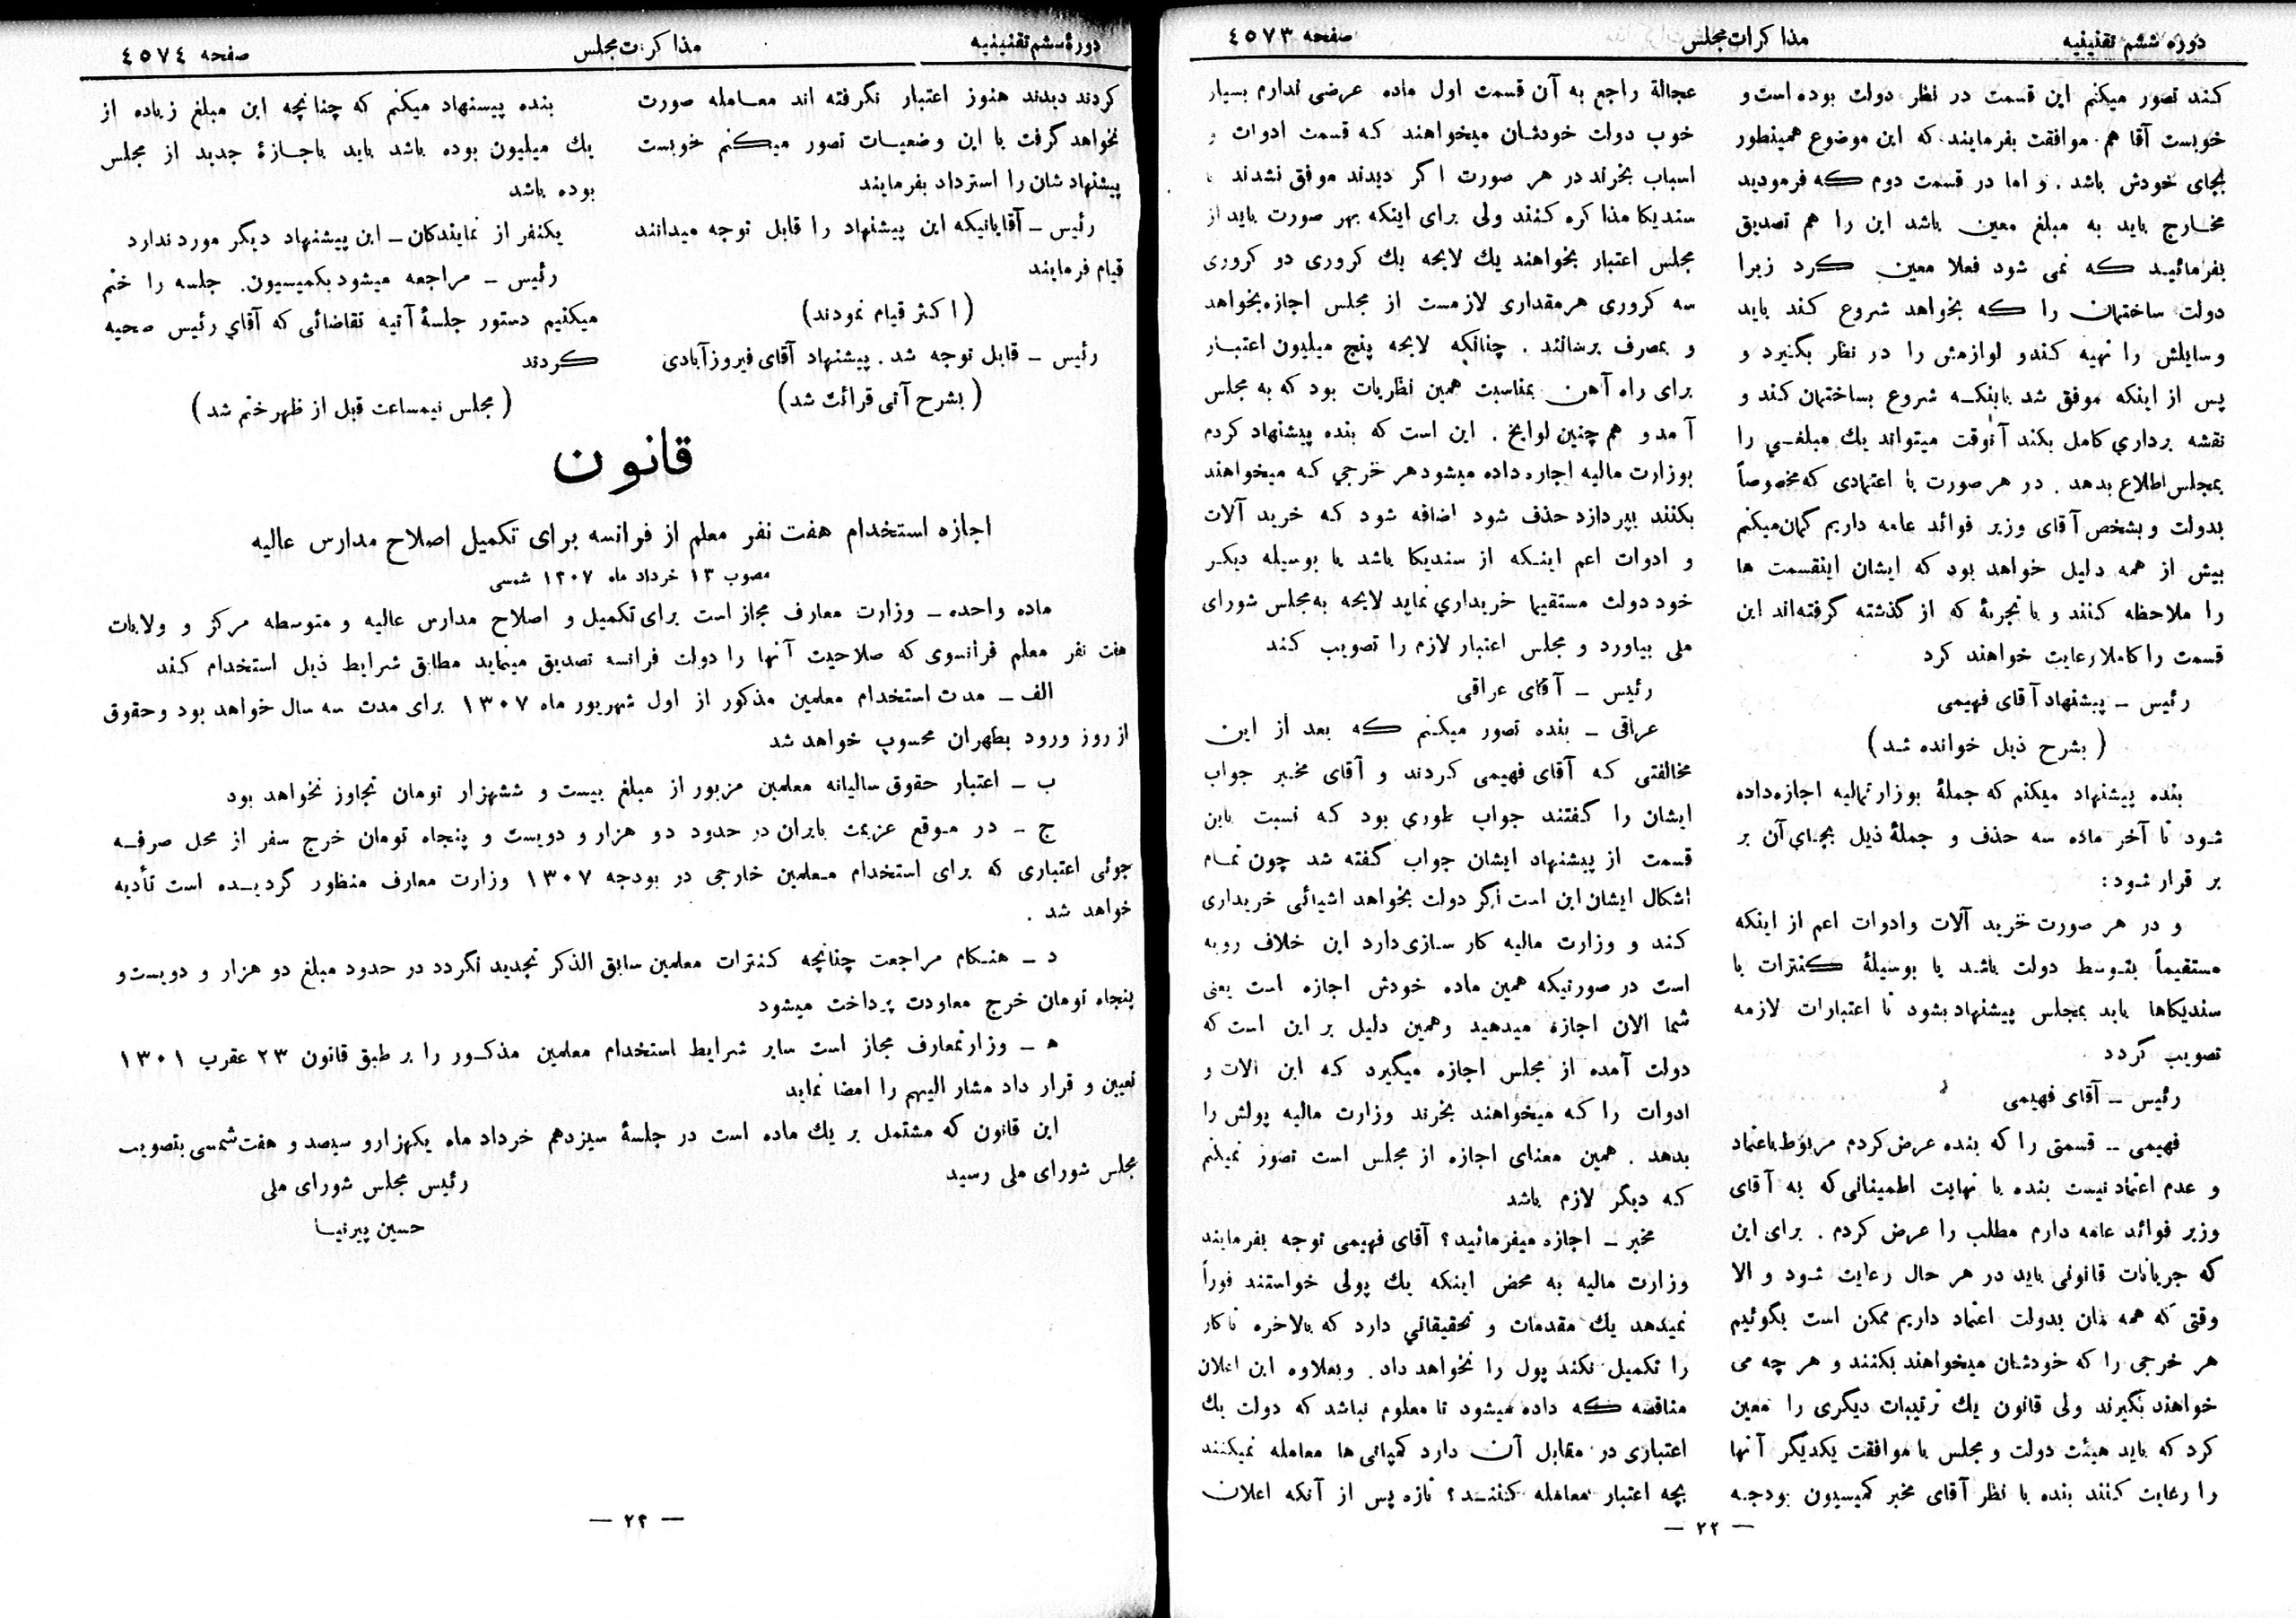 دوره ششم تقنینیه
مذاکرات مجلس
صفحه ٤٥٧٣
کند تصور میکنم این قسمت در نظر دولت بوده است و
خوبست آقا هم موافقت بفرمایند که این موضوع همینطور
بجای خودش باشد . و اما در قسمت دوم که فرمودید
مخارج باید به مبلغ معین باشد این را هم تصدیق
بفرمائید که نمی شود فعلا معین کرد زیرا
دولت ساختمان را که بخواهد شروع کند باید
وسایلش را تهیه کند و لوازمش را در نظر بگیرد و
پس از اینکه موفق شد باینکه شروع بساختمان کند و
نقشه برداری کامل بکند آنوقت میتواند یك مبلغی را
بمجلس اطلاع بدهد . در هر صورت با اعتمادی که مخصوصاً
بدولت و بشخص آقای وزیر فوائد عامه داریم گمان میکنم
بیش از همه دلیل خواهد بود که ایشان اینقسمت ها
را ملاحظه کنند و با تجربهٔ که از گذشته گرفته‌اند این
قسمت را کاملا رعایت خواهند کرد
رئیس ـ پیشنهاد آقای فهیمی
( بشرح ذیل خوانده شد )
بنده پیشنهاد میکنم که جملهٔ بوزارتمالیه اجازه داده
شود تا آخر ماده سه حذف و جملهٔ ذیل بجای آن بر
بر قرار شود :
و در هر صورت خرید آلات وادوات اعم از اینکه
مستقیماً بتوسط دولت باشد یا بوسیلهٔ کنترات با
سندیکاها باید بمجلس پیشنهاد بشود تا اعتبارات لازمه
تصویب گردد
رئیس ـ آقای فهیمی
فهیمی ـ قسمتی را که بنده عرض کردم مربوط باعتماد
و عدم اعتماد نیست بنده با نهایت اطمینانی که به آقای
وزیر فوائد عامه دارم مطلب را عرض کردم . برای این
که جریانات قانونی باید در هر حال رعایت شود و الا
وقتی که همه مان بدولت اعتماد داریم ممکن است بگوئیم
هر خرجی را که خودشان میخواهند بکنند و هر چه می
خواهند بگیرند ولی قانون یك ترتیبات دیگری را معین
کرد که باید هیئت دولت و مجلس با موافقت یکدیگر آنها
را رعایت کنند بنده با نظر آقای مخبر کمیسیون بودجه
عجالة راجع به آن قسمت اول ماده عرضی ندارم بسیار
خوب دولت خودشان میخواهند که قسمت ادوات و
اسباب بخرند در هر صورت اگر دیدند موفق نشدند با
سندیکا مذاکره کنند ولی برای اینکه بهر صورت باید از
مجلس اعتبار بخواهند یك لایحه یك کروری دو کروری
سه کروری هر مقداری لازمست از مجلس اجازه بخواهد
و بمصرف برسانند . چنانکه لایحه پنج میلیون اعتبار
برای راه آهن بمناسبت همین نظریات بود که به مجلس
آمد و هم چنین لوایح . این است که بنده پیشنهاد کردم
بوزارت مالیه اجازه داده میشود هر خرجی که میخواهند
بکنند بپردازد حذف شود اضافه شود که خرید آلات
و ادوات اعم اینکه از سندیکا باشد یا بوسیله دیگر
خود دولت مستقیما خریداری نماید لایحه به مجلس شورای
ملی بیاورد و مجلس اعتبار لازم را تصویب کند
رئیس ـ آقای عراقی
عراقی ـ بنده تصور میکنم که بعد از این
مخالفتی که آقای فهیمی کردند و آقای مخبر جواب
ایشان را گفتند جواب طوری بود که نسبت باین
قسمت از پیشنهاد ایشان جواب گفته شد چون تمام
اشکال ایشان این است اگر دولت بخواهد اشیائی خریداری
کند و وزارت مالیه کار سازی دارد این خلاف رویه
است در صورتیکه همین ماده خودش اجازه است یعنی
شما الان اجازه میدهید و همین دلیل بر این است که
دولت آمده از مجلس اجازه میگیرد که این الات و
ادوات را که میخواهند بخرند وزارت مالیه پولش را
بدهد . همین معنای اجازه از مجلس است تصور نمیکنم
که دیگر لازم باشد
مخبر ـ اجازه میفرمائید ؟ آقای فهیمی توجه بفرمایند
وزارت مالیه به محض اینکه یك پولی خواستند فوراً
نمیدهد یك مقدمات و تحقیقاتی دارد که بالاخره تا کار
را تکمیل نکند پول را نخواهد داد . وبعلاوه این اعلان
مناقصه که داده میشود تا معلوم نباشد که دولت یك
اعتباری در مقابل آن دارد کمپانی ها معامله نمیکنند
بچه اعتبار معامله کنند ؟ تازه پس از آنکه اعلان
— ٢٢ —
دورهٔ ششم تقنینیه
مذاکرات مجلس
صفحه ٤٥٧٤
کردند دیدند هنوز اعتبار نگرفته اند معامله صورت
نخواهد گرفت با این وضعیات تصور میکنم خوبست
پیشنهادشان را استرداد بفرمایند
رئیس ـ آقایانیکه این پیشنهاد را قابل توجه میدانند
قیام فرمایند
( اکثر قیام نمودند )
رئیس ـ قابل توجه شد . پیشنهاد آقای فیروزآبادی
( بشرح آتی قرائت شد )
بنده پیسنهاد میکنم که چنانچه این مبلغ زیاده از
یك میلیون بوده باشد باید باجازهٔ جدید از مجلس
بوده باشد
یکنفر از نمایندکان ـ این پیشنهاد دیگر مورد ندارد
رئیس ـ مراجعه میشود بکمیسیون . جلسه را ختم
میکنیم دستور جلسهٔ آتیه تقاضائی که آقای رئیس صحیه
کردند
( مجلس نیمساعت قبل از ظهر ختم شد )
قانون
اجازه استخدام هفت نفر معلم از فرانسه برای تکمیل اصلاح مدارس عالیه
مصوب ١٣ خرداد ماه ١٣٠٧ شمسی
ماده واحده ـ وزارت معارف مجاز است برای تکمیل و اصلاح مدارس عالیه و متوسطه مرکز و ولایات
هفت نفر معلم فرانسوی که صلاحیت آنها را دولت فرانسه تصدیق مینماید مطابق شرایط ذیل استخدام کند
الف ـ مدت استخدام معلمین مذکور از اول شهریور ماه ١٣٠٧ برای مدت سه سال خواهد بود و حقوق
از روز ورود بطهران محسوب خواهد شد
ب ـ اعتبار حقوق سالیانه معلمین مزبور از مبلغ بیست و ششهزار تومان تجاوز نخواهد بود
ج ـ در موقع عزیمت بایران در حدود دو هزار و دویست و پنجاه تومان خرج سفر از محل صرفه
جوئی اعتباری که برای استخدام معلمین خارجی در بودجه ١٣٠٧ وزارت معارف منظور گردیده است تأدیه
خواهد شد .
د ـ هنگام مراجعت چنانچه کنترات معلمین سابق الذکر تجدید نگردد در حدود مبلغ دو هزار و دویست و
پنجاه تومان خرج معاودت پرداخت میشود
ه ـ وزارتمعارف مجاز است سایر شرایط استخدام معلمین مذکور را بر طبق قانون ٢٣ عقرب ١٣٠١
تعیین و قرار داد مشار الیهم را امضا نماید
این قانون که مشتمل بر یك ماده است در جلسهٔ سیزدهم خرداد ماه یکهزار و سیصد و هفت شمسی بتصویب
مجلس شورای ملی رسید
رئیس مجلس شورای ملی
حسین پیرنیا
— ٢٣ —